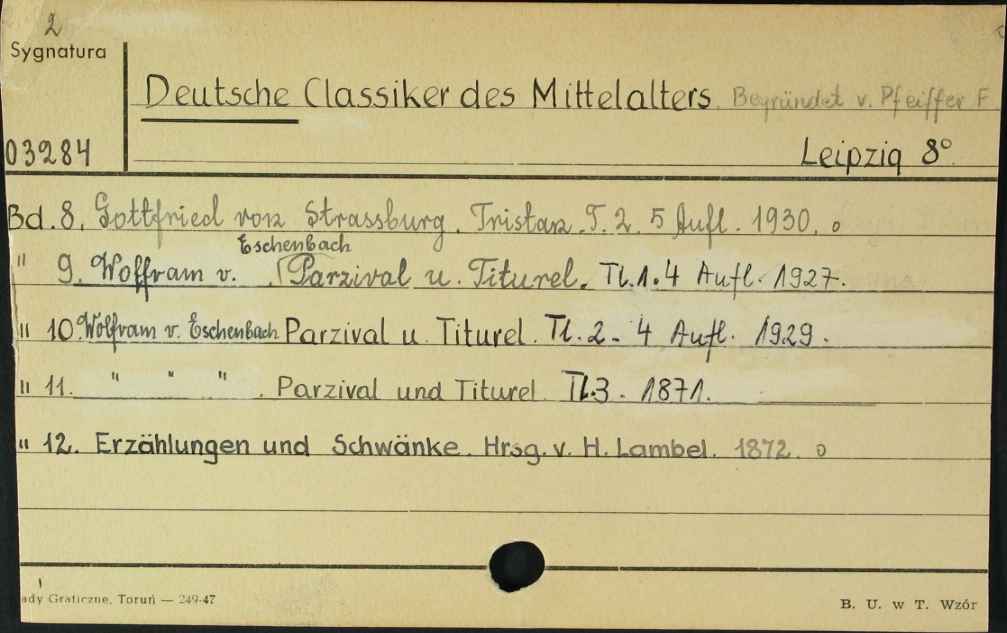 2
Sygnatura
Deutsche Classiker des Mittelalters. Begründet v. Pfeiffer F
03284
Leipzig 8°
Bd. 8. Gottfried von Strassburg. Tristan. T. 2. 5 Aufl. 1930. o
Eschenbach
" 9. Wolfram v. Parzival u. Titurel. Tl. 1. 4 Aufl. 1927.
" 10. Wolfram v. Eschenbach Parzival u. Titurel. Tl. 2. 4 Aufl. 1929.
" 11. " " " . Parzival und Titurel. Tl. 3. 1871.
" 12. Erzählungen und Schwänke. Hrsg. v. H. Lambel. 1872. o
ady Graficzne, Toruń — 249-47
B. U. w T. Wzór